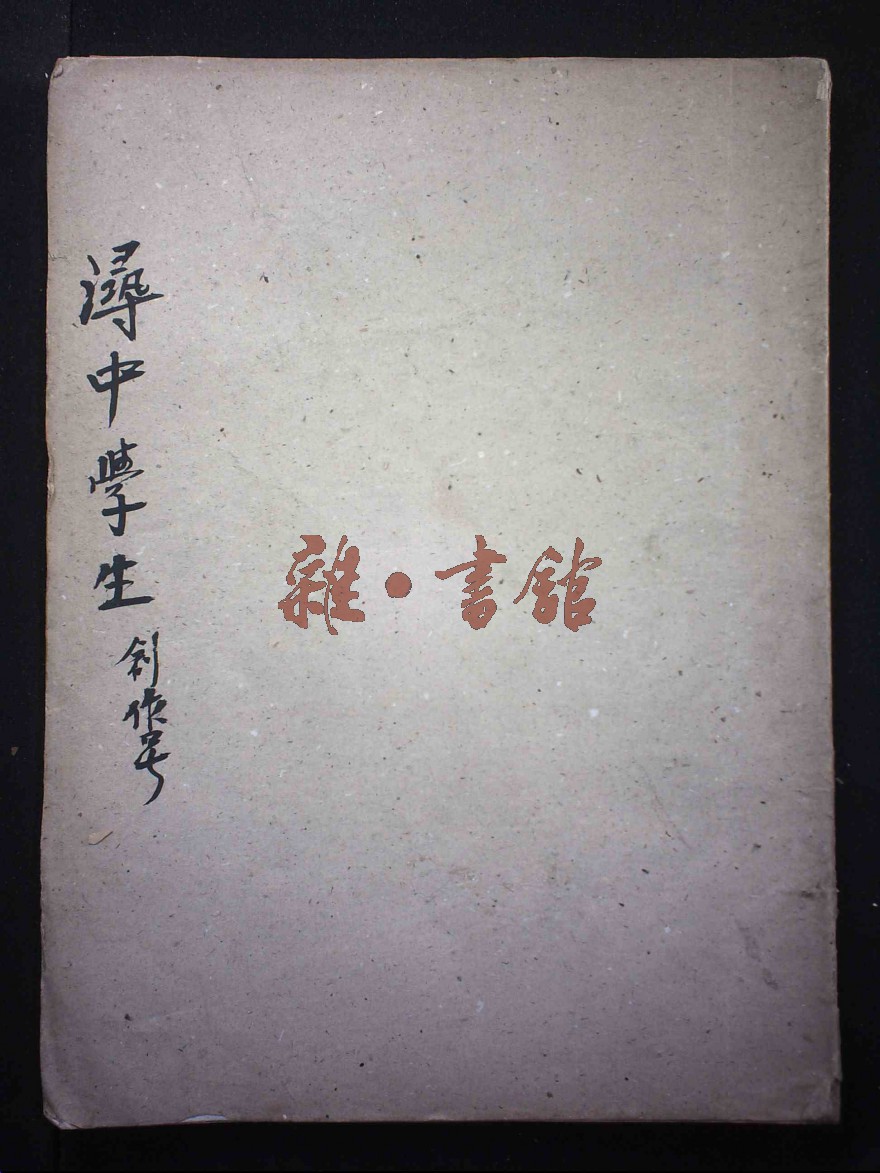 潯中學生
創作号
雜·書館